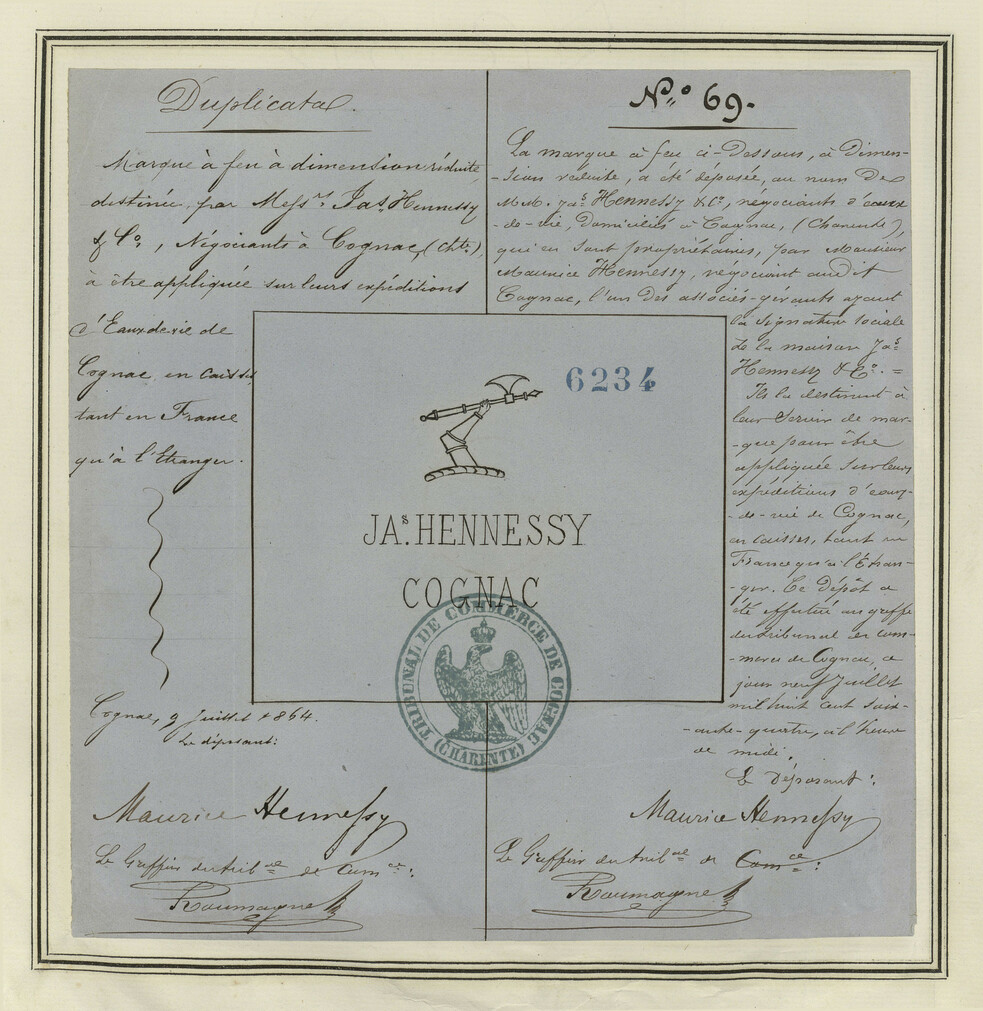 Duplicata.
Marque à feu à dimension réduite,
destinée, par Mess.rs Jas Hennessy
& Co, Négociants à Cognac, (Chte),
à être appliquée sur leurs expéditions
d'Eaux de vie de
Cognac, en caisses,
tant en France
qu'à l'Etranger.
Cognac, 9 Juillet 1864.
Le déposant:
Maurice Hennessy
Le Greffier du tribal de Comce:
Roumagne
No 69.
La marque à feu ci-Dessous, à Dimen-
-sion réduite, a été déposée, au nom De
MM. Jas Hennessy & Co, négociants d'eaux-
-de-vie, Domiciliés à Cognac, (Charente),
qui en sont propriétaires, par Monsieur
Maurice Hennessy, négociant audit
Cognac, l'un Des associés-gérants ayant
la signature sociale
de la maison Jas
Hennessy & Co. =
Ils la destinent à
leur servir de mar-
-que pour être
appliquée sur leurs
expéditions d'eaux-
-de-vie de Cognac,
en caisses, tant en
France qu'à l'Etran-
-ger. Ce Dépôt a
été effectué au greffe
du tribunal de com-
-merce de Cognac, ce
jour neuf Juillet
mil huit cent soix-
-ante-quatre, à l'heure
de midi.
Le Déposant:
Maurice Hennessy
Le Greffier du tribal de Comce:
Roumagne
6234
JAs. HENNESSY
COGNAC
TRIBUNAL DE COMMERCE DE COGNAC
(CHARENTE)